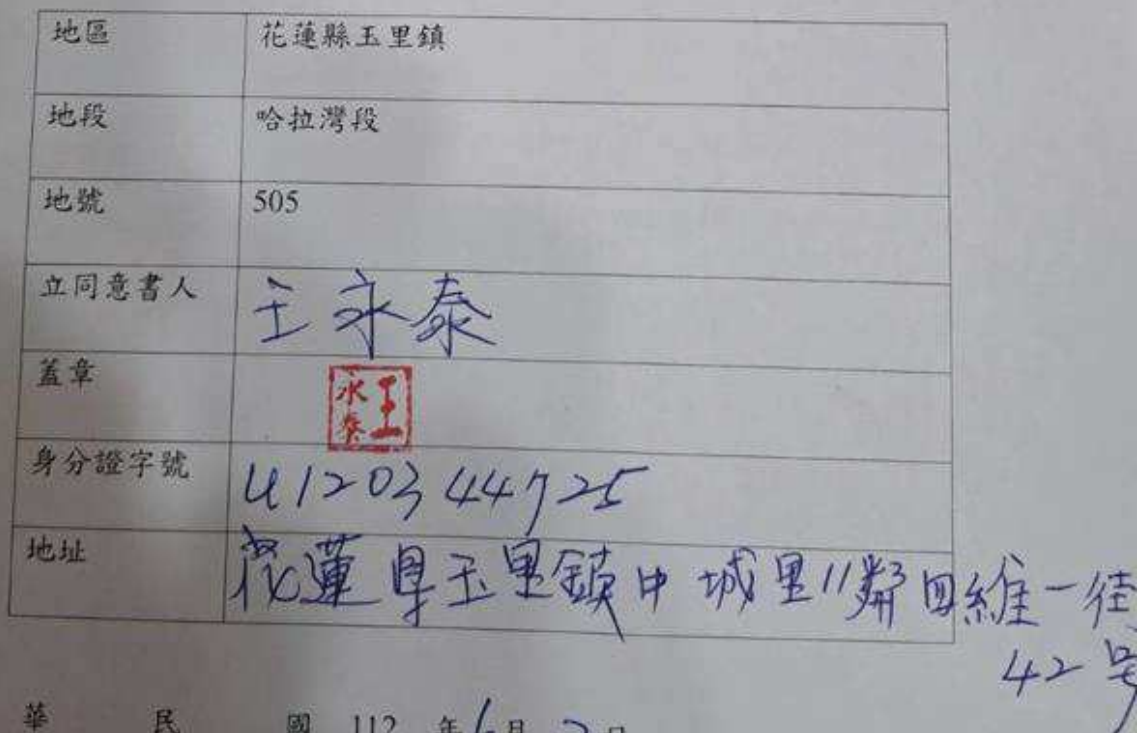 地區 花蓮縣玉里鎮
地段 哈拉灣段
地號 505
立同意書人 王永泰
蓋章 王永泰
身分證字號 U120344725
地址 花蓮県玉里鎮中城里11鄰四維一街
42号
華 民 國 112 年 6 月 2 日